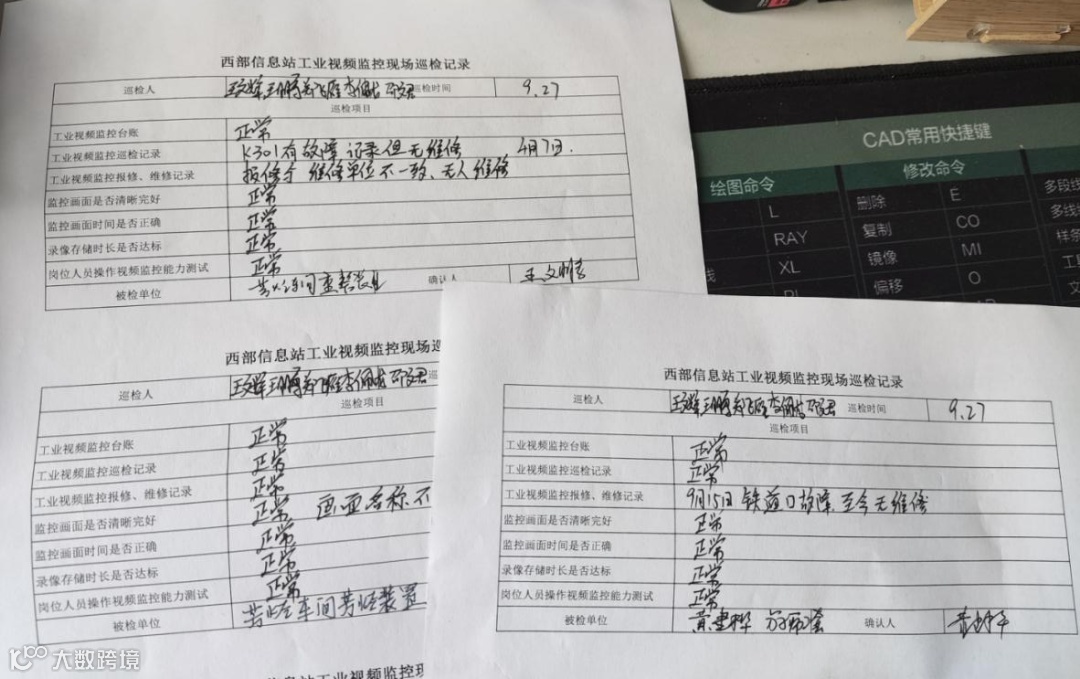 西部信息站工业视频监控现场巡检记录
巡检人 巡检时间 9.27
巡检项目
工业视频监控台账 正常
工业视频监控巡检记录 K301有故障 记录但无维修 4月7日.
工业视频监控报修、维修记录 报修与 维修单位不一致、无人维修
监控画面是否清晰完好 正常
监控画面时间是否正确 正常
录像存储时长是否达标 正常
岗位人员操作视频监控能力测试 正常
被检单位 确认人
西部信息站工业视频监控现场巡
巡检人
巡检项目
工业视频监控台账 正常
工业视频监控巡检记录 正常
工业视频监控报修、维修记录 正常
监控画面是否清晰完好 正常 画面名称不
监控画面时间是否正确 正常
录像存储时长是否达标 正常
岗位人员操作视频监控能力测试 正常
被检单位 芳烃车间芳烃装置
西部信息站工业视频监控现场巡检记录
巡检人 巡检时间 9.27
巡检项目
工业视频监控台账 正常
工业视频监控巡检记录 正常
工业视频监控报修、维修记录 9月15日 铁道口故障,至今无维修
监控画面是否清晰完好 正常
监控画面时间是否正确 正常
录像存储时长是否达标 正常
岗位人员操作视频监控能力测试 正常
被检单位 确认人
息站工业视频监控现
CAD常用快捷键
绘图命令 修改命令
L 删除 E 多段线
RAY 复制 CO 多线
XL 镜像 MI 样条
偏移 O
大数跨境